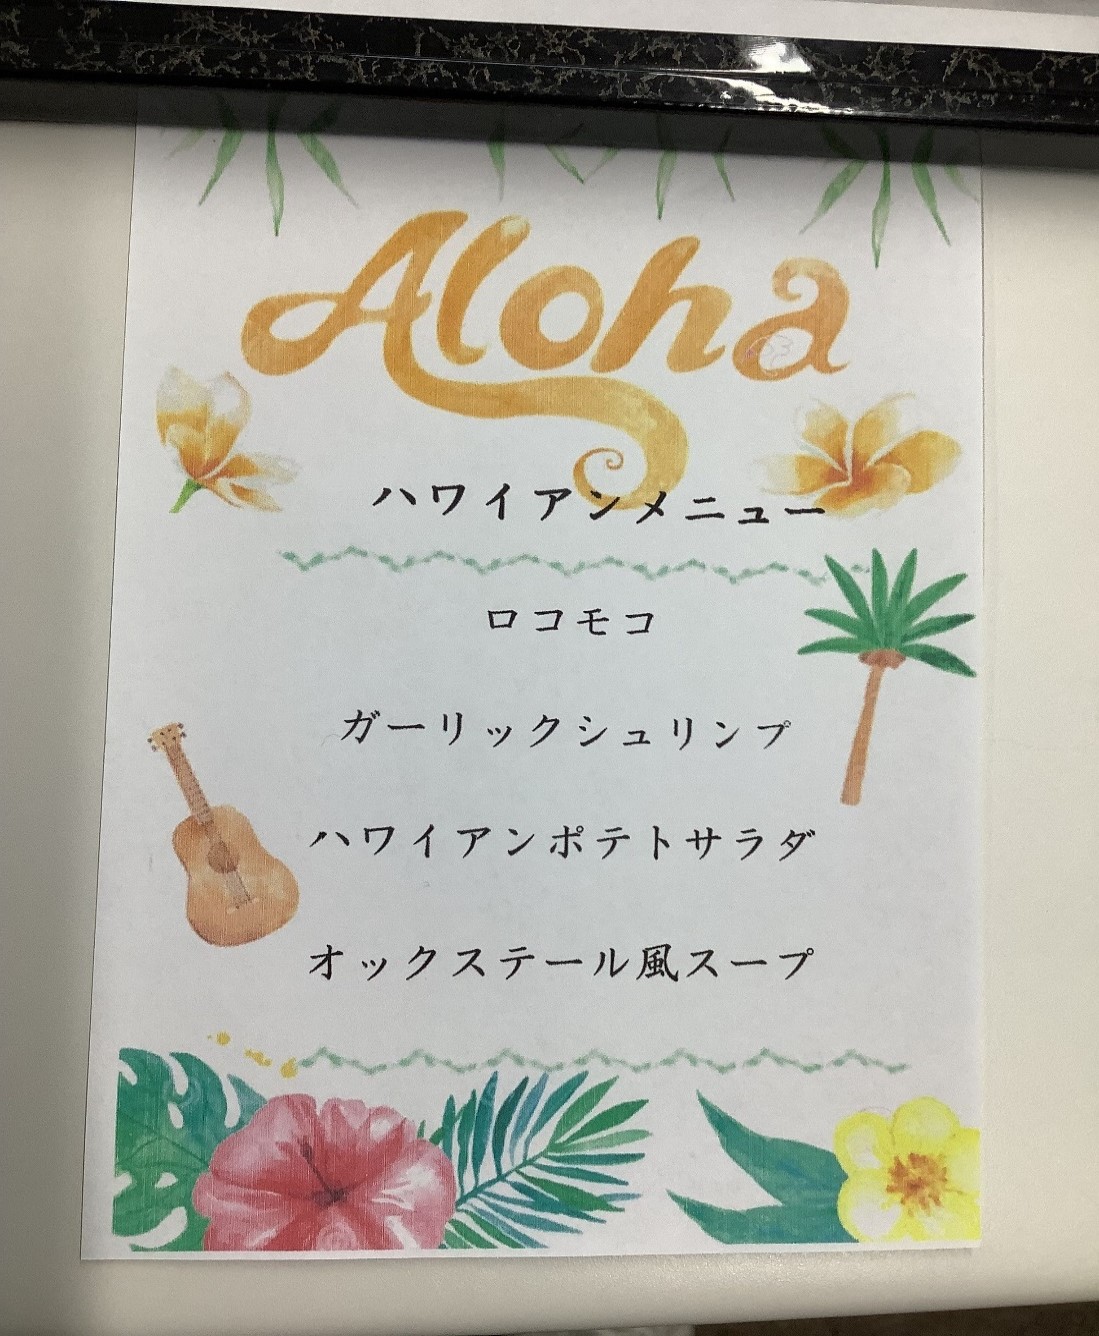 Aloha
ハワイアンメニュー
ロコモコ
ガーリックシュリンプ
ハワイアンポテトサラダ
オックステール風スープ